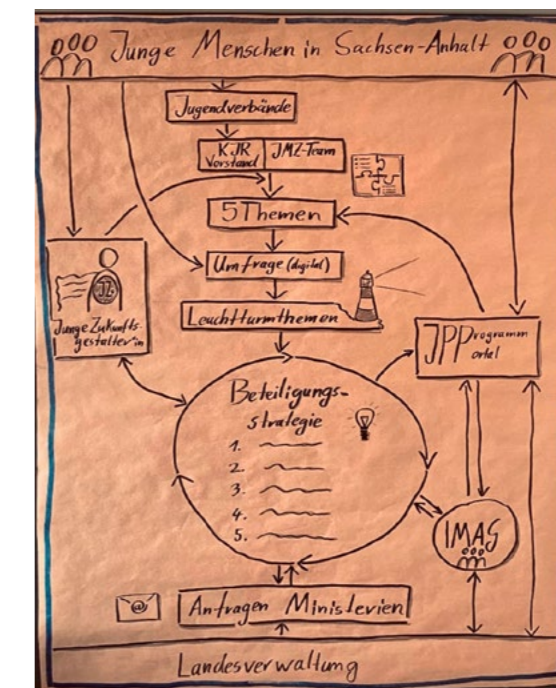 Junge Menschen in Sachsen-Anhalt
Jugendverbände
KJR
Vorstand
JMZ-Team
5 Themen
Umfrage (digital)
Leuchtturmthemen
JZ
Junge Zukunfts-
gestalter*in
JPProgramm
ortal
Beteiligungs-
strategie
1.
2.
3.
4.
5.
IMAS
@
Anfragen Ministerien
Landesverwaltung